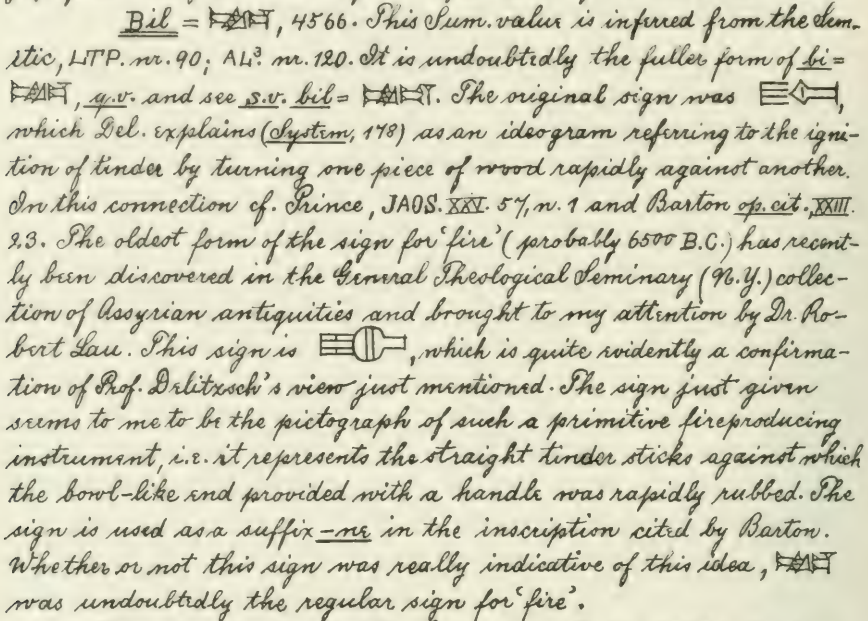 Bil = 𒉈, 4566. This Sum. value is inferred from the Sem-
itic, LTP. nr. 90; AL³. nr. 120. It is undoubtedly the fuller form of bi =
𒉈, q.v. and see s.v. bil = . The original sign was ,
which Del. explains (System, 178) as an ideogram referring to the igni-
tion of tinder by turning one piece of wood rapidly against another.
In this connection cf. Prince, JAOS. XXV. 57, n. 1 and Barton op. cit., XXIII.
23. The oldest form of the sign for 'fire' (probably 6500 B.C.) has recent-
ly been discovered in the General Theological Seminary (N.Y.) collec-
tion of Assyrian antiquities and brought to my attention by Dr. Ro-
bert Lau. This sign is , which is quite evidently a confirma-
tion of Prof. Delitzsch's view just mentioned. The sign just given
seems to me to be the pictograph of such a primitive fireproducing
instrument, i.e. it represents the straight tinder sticks against which
the bowl-like end provided with a handle was rapidly rubbed. The
sign is used as a suffix -ne in the inscription cited by Barton.
Whether or not this sign was really indicative of this idea, 𒉈
was undoubtedly the regular sign for 'fire'.